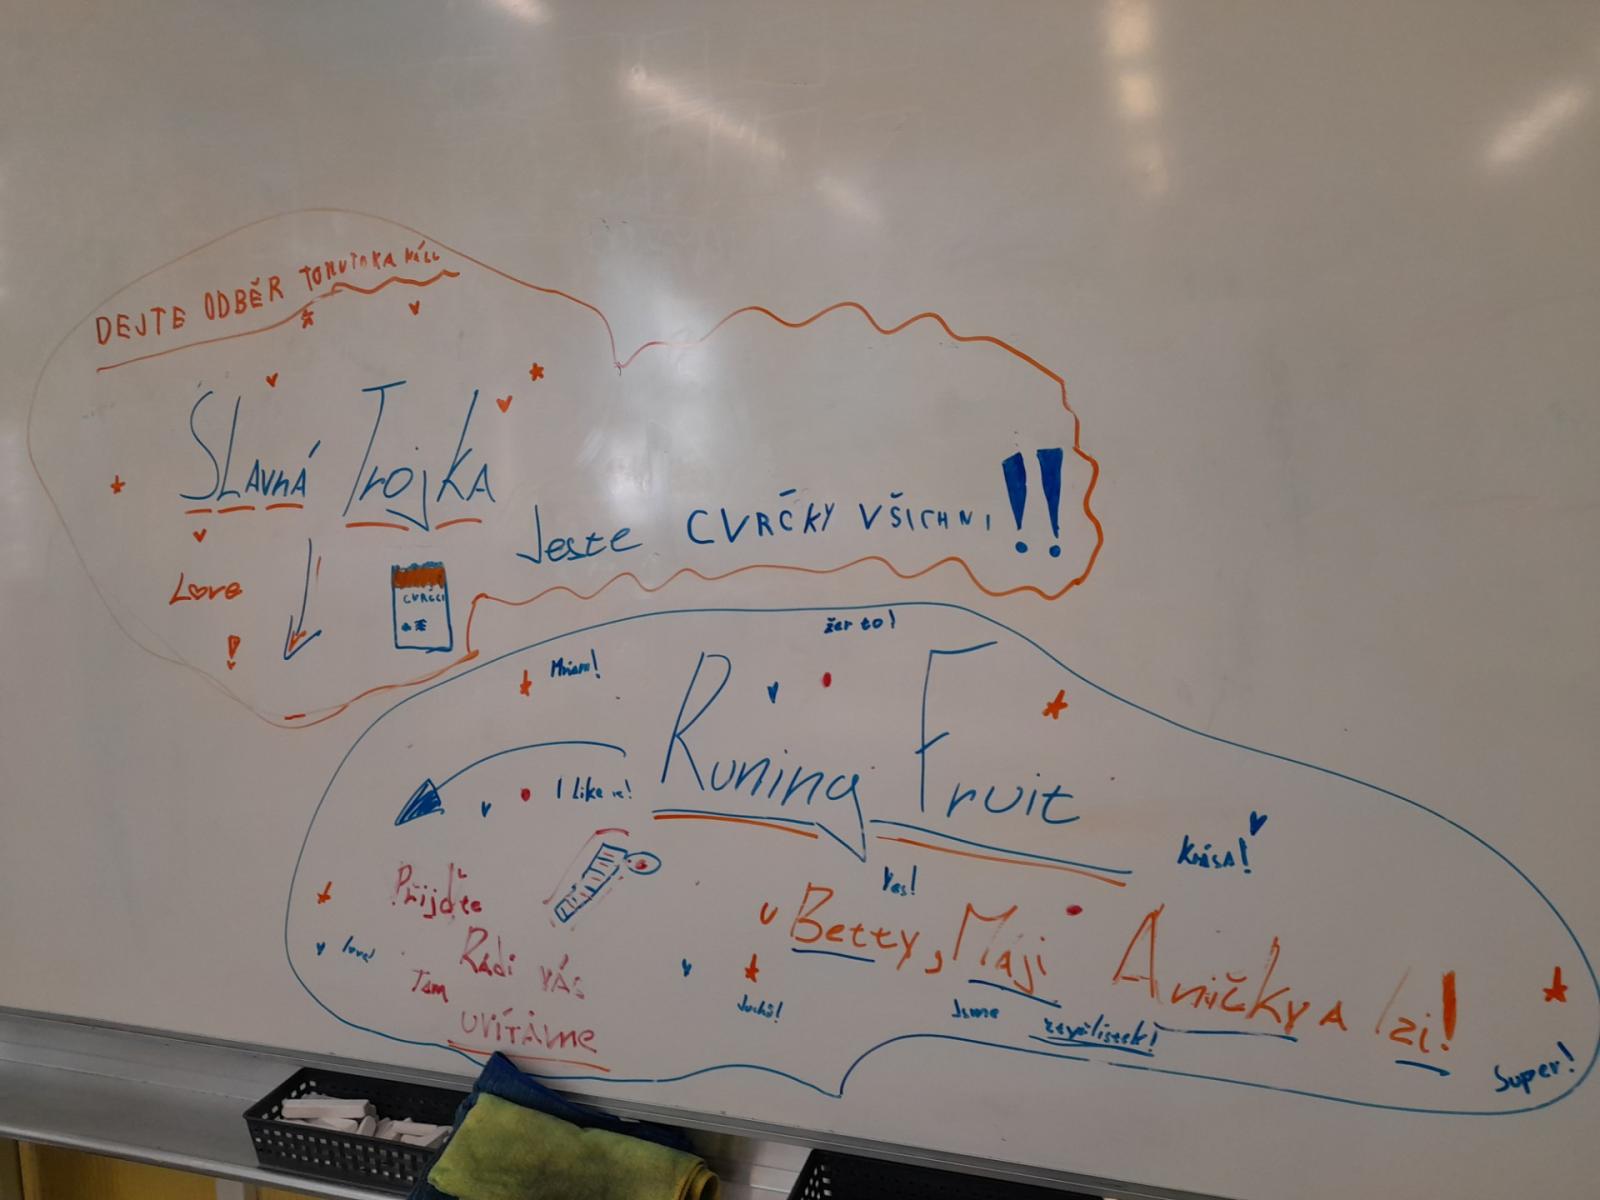 DEJTE ODBĚR
SLAVNÁ TrojKA
Jeste CVRČKY VŠICHNI!!
Love
!
CVRČCI
žer to!
Mňam!
Runing Fruit
I Like it!
Krása!
Yes!
Přijďte
Betty, Máji Aničky A Izi!
love!
Rádi vás
Tam
Juchů!
Jsme
uvítáme
Super!